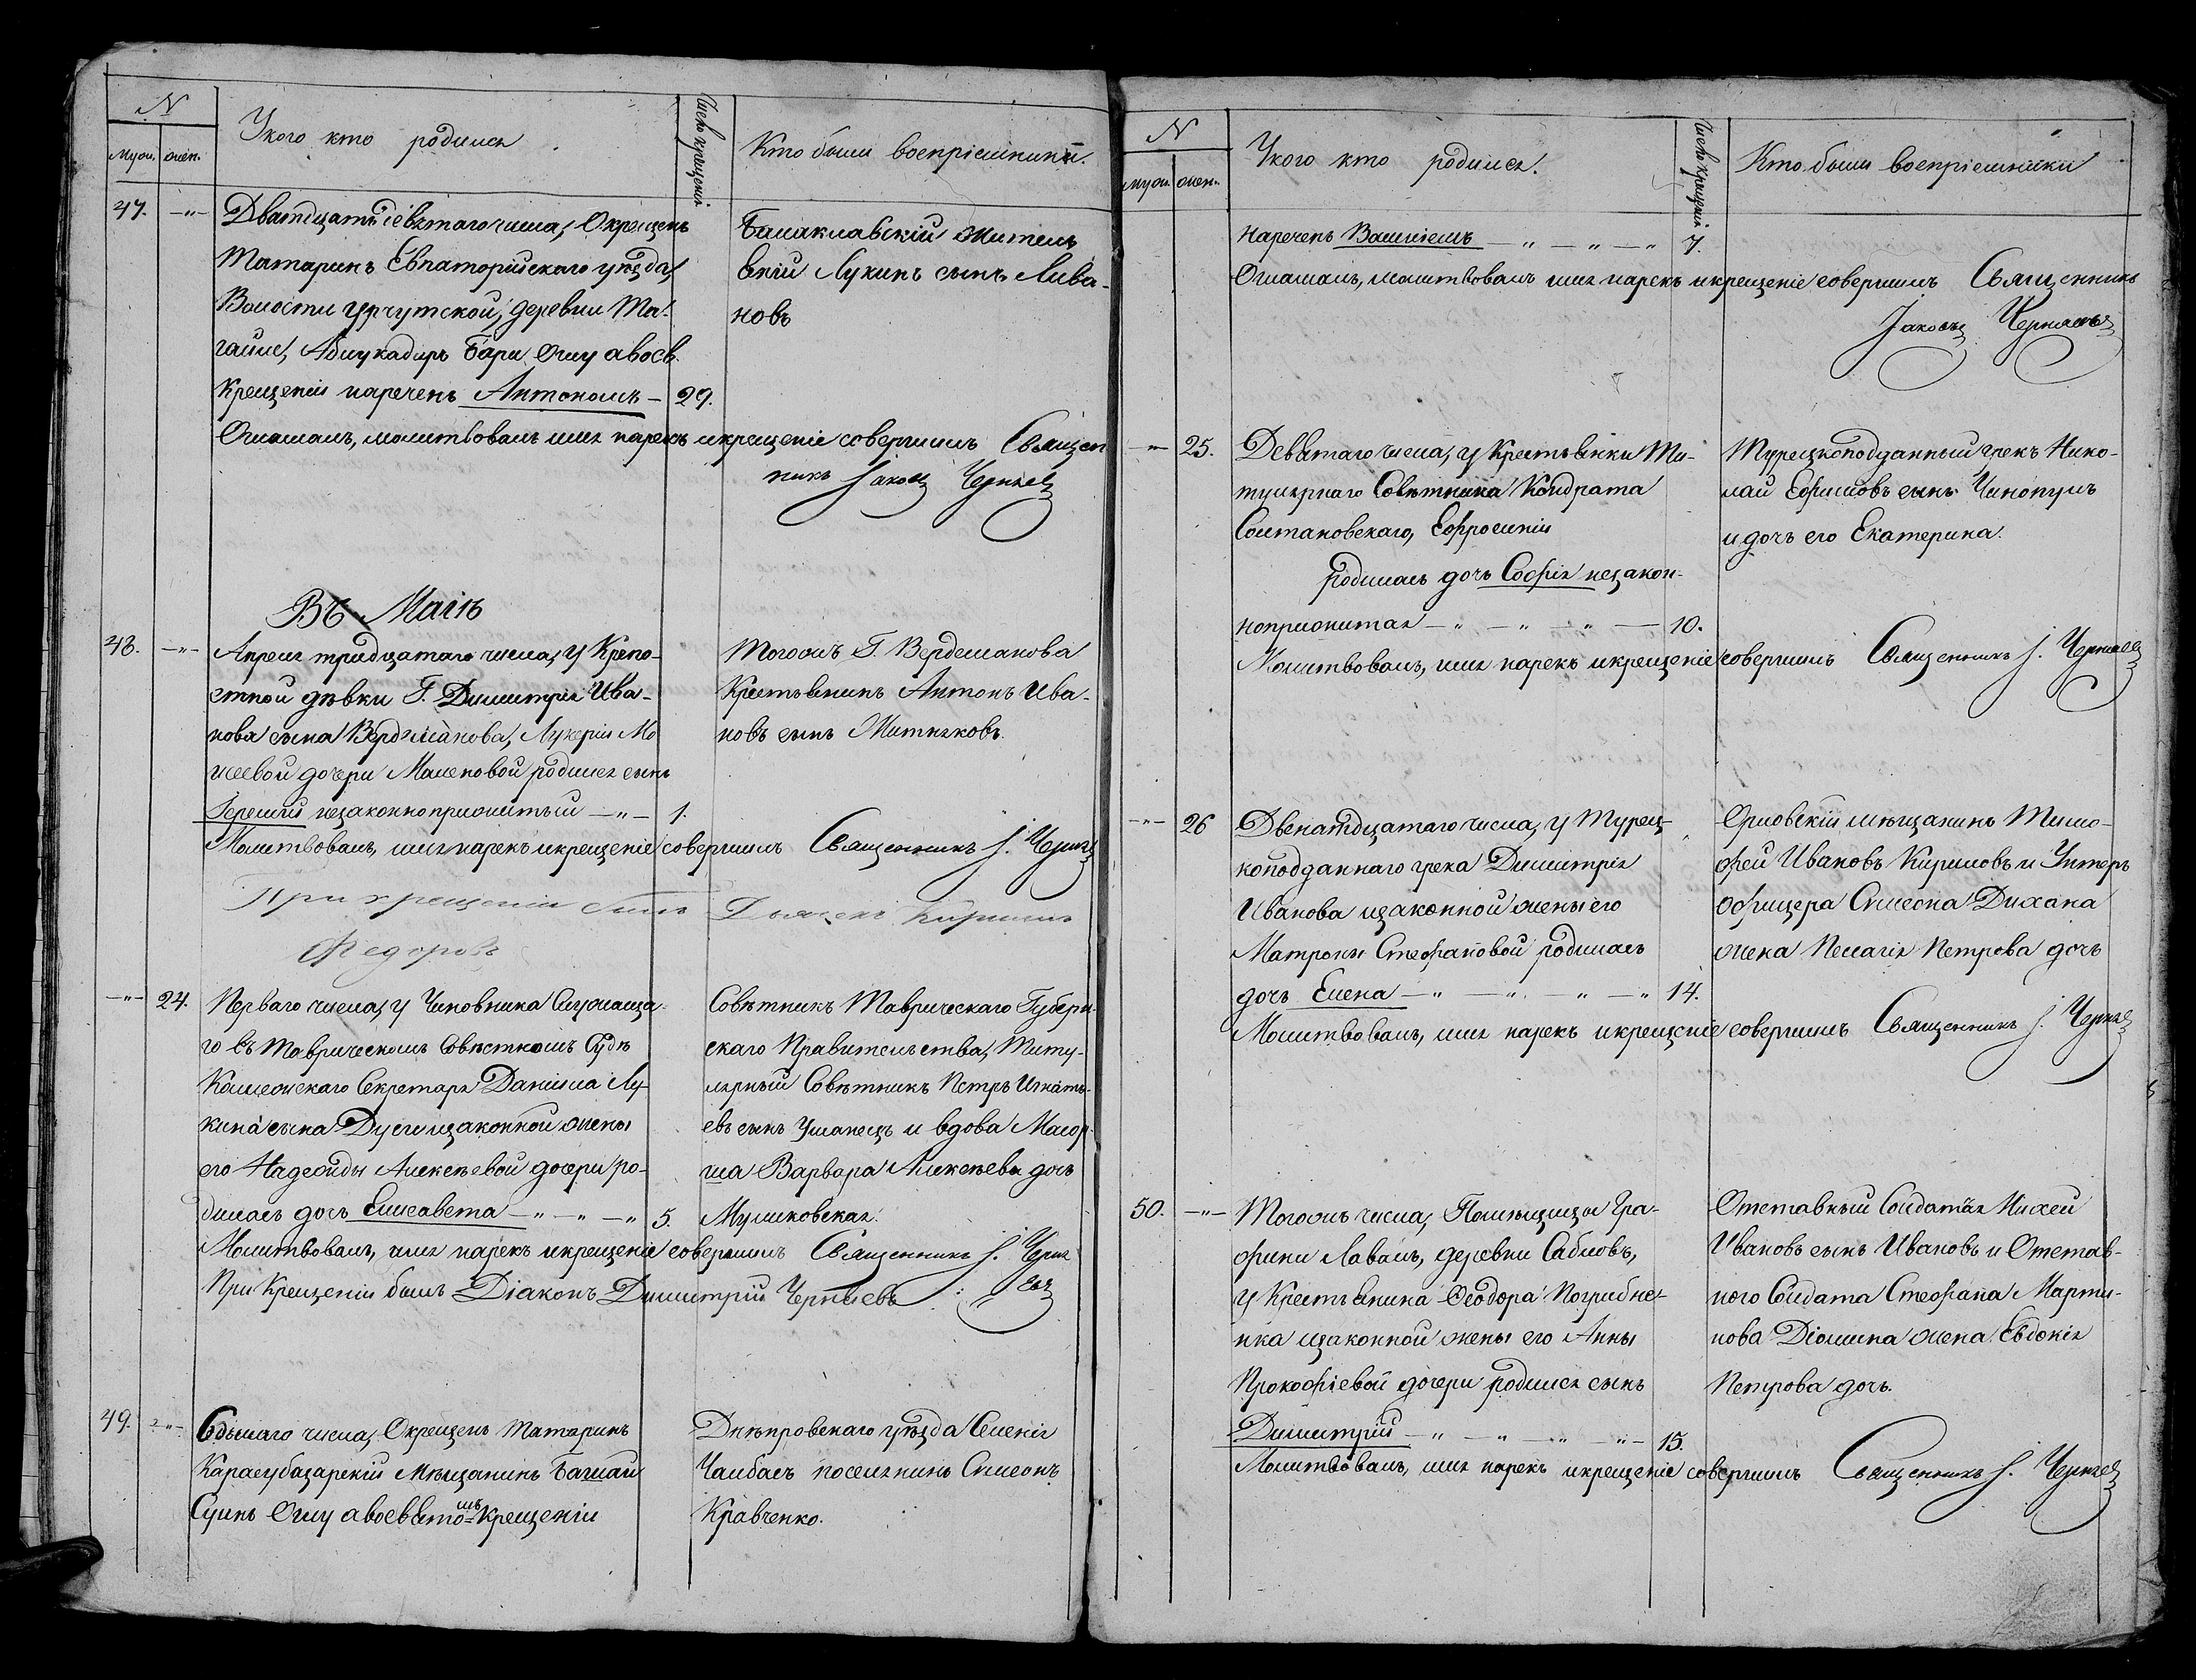 N
Муж. жен.
У кого кто родился
Число крещенія
Кто были воспріемники.
47. —"— Дватдцать девятаго числа, Окрещенъ
Татаринъ Евпаторійскаго уѣзда,
Волости Урчутской, деревни Та-
гайлы, Абдукадыръ Бари Оглу авосв.
Крещеніи нареченъ Антономъ — 29.
Балаклавскій житель
Лукинъ сынъ Лива-
новъ
Оглашалъ, молитвовалъ имя нарекъ икрещеніе совершилъ Священ
никъ Іаковъ Черняевъ
Въ Маіѣ
48. —"— Апреля тридцатаго числа, у Крепо-
стной дѣвки Г. Димитрія Ива-
нова сына Вердеманова, Лукеріи Мо
исеевой дочери родился сынъ
Іеремій незаконноприжитый —"— 1.
Тогожъ Г. Вердеманова
Крестьянинъ Антонъ Ива-
новъ сынъ Житняковъ.
Молитвовалъ, имя нарекъ икрещеніе совершилъ Священникъ І. Черняевъ
При крещеніи былъ Дьячекъ Кириллъ
Федоровъ
—"— 24. Перваго числа, у Чиновника Служаща-
го въ Таврическомъ Совѣстномъ Судѣ
Коллежскаго Секретаря Даніила Лу-
кина сына изаконной жены
его Надежды Алексѣевой дочери ро-
дилась дочь Елисавета —"—"—" 5.
Совѣтникъ Таврическаго Губерн-
скаго Правительства, Титу-
лярный Совѣтникъ Петръ Игнать-
евъ сынъ и вдова Маіор-
ша Варвара Алексѣева дочь
Муликовская.
Молитвовалъ, имя нарекъ икрещеніе совершилъ Священникъ І. Черня
При Крещеніи былъ Діаконъ Димитрій Черняевъ евъ
49. —"— Седьмаго числа, Окрещенъ Татаринъ
Карасубазарскій Мѣщанинъ
Оглу авосвятомъ Крещеніи
Днѣпровскаго уѣзда Селенія
Чалбасъ поселянинъ Симеонъ
Кравченко.
N
Муж. жен.
У кого кто родился.
Число крещенія
Кто были воспріемники
нареченъ Василіемъ —"—"—" 7.
Оглашалъ, молитвовалъ имя нарекъ икрещеніе совершилъ Священникъ
Іаковъ Черняевъ
—"— 25. Девятаго числа, у Крестьянки Ти-
тулярнаго Совѣтника Кондрата
Солтановскаго, Ефросиніи
родилась дочь Софія незакон-
ноприжитая —"—"—"— 10.
Турецкоподданный грекъ Нико-
лай Ефимовъ сынъ Чинопулъ
и дочь его Екатерина.
Молитвовалъ, имя нарекъ икрещеніе совершилъ Священникъ І. Черняевъ
—"— 26 Двенатдцатаго числа, у Турец-
коподданнаго грека Димитрія
Иванова изаконной жены его
Матроны Стефановой родилась
дочь Елена —"—"—"—" 14.
Орловскій мѣщанинъ Тимо-
фей Ивановъ Кириловъ и Унтеръ
офицера Симеона Дихана
жена Пелагія Петрова дочь
Молитвовалъ, имя нарекъ икрещеніе совершилъ Священникъ І. Черняевъ
50. —"— Тогожъ числа, Помѣщицы Гра-
фини Лаваль, деревни Сабловъ,
у Крестьянина Феодора Погрибне-
нка изаконной жены его Анны
Прокофіевой дочери родился сынъ
Димитрій —"—"—"—"— 15.
Отставный Солдатъ Михей
Ивановъ сынъ Ивановъ и Отстав-
ного Солдата Стефана Марты-
нова Діомина жена Евдокія
Петрова дочь.
Молитвовалъ, имя нарекъ икрещеніе совершилъ Священникъ І. Черняевъ